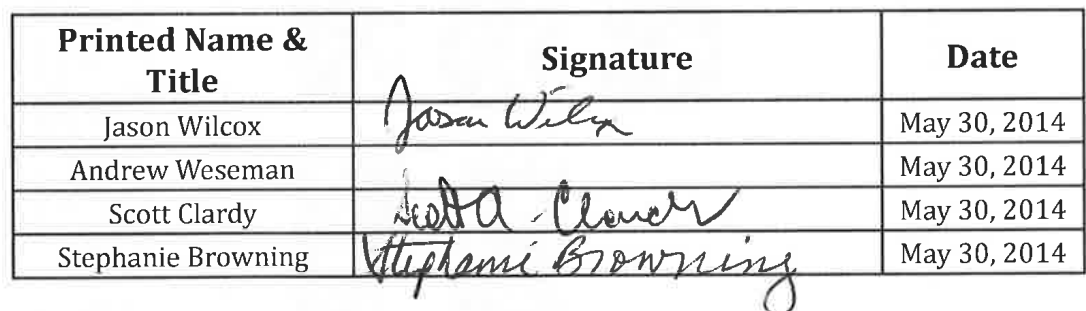 Printed Name & Title Signature Date
Jason Wilcox Jason Wilcox May 30, 2014
Andrew Weseman May 30, 2014
Scott Clardy Scott A. Clardy May 30, 2014
Stephanie Browning Stephanie Browning May 30, 2014